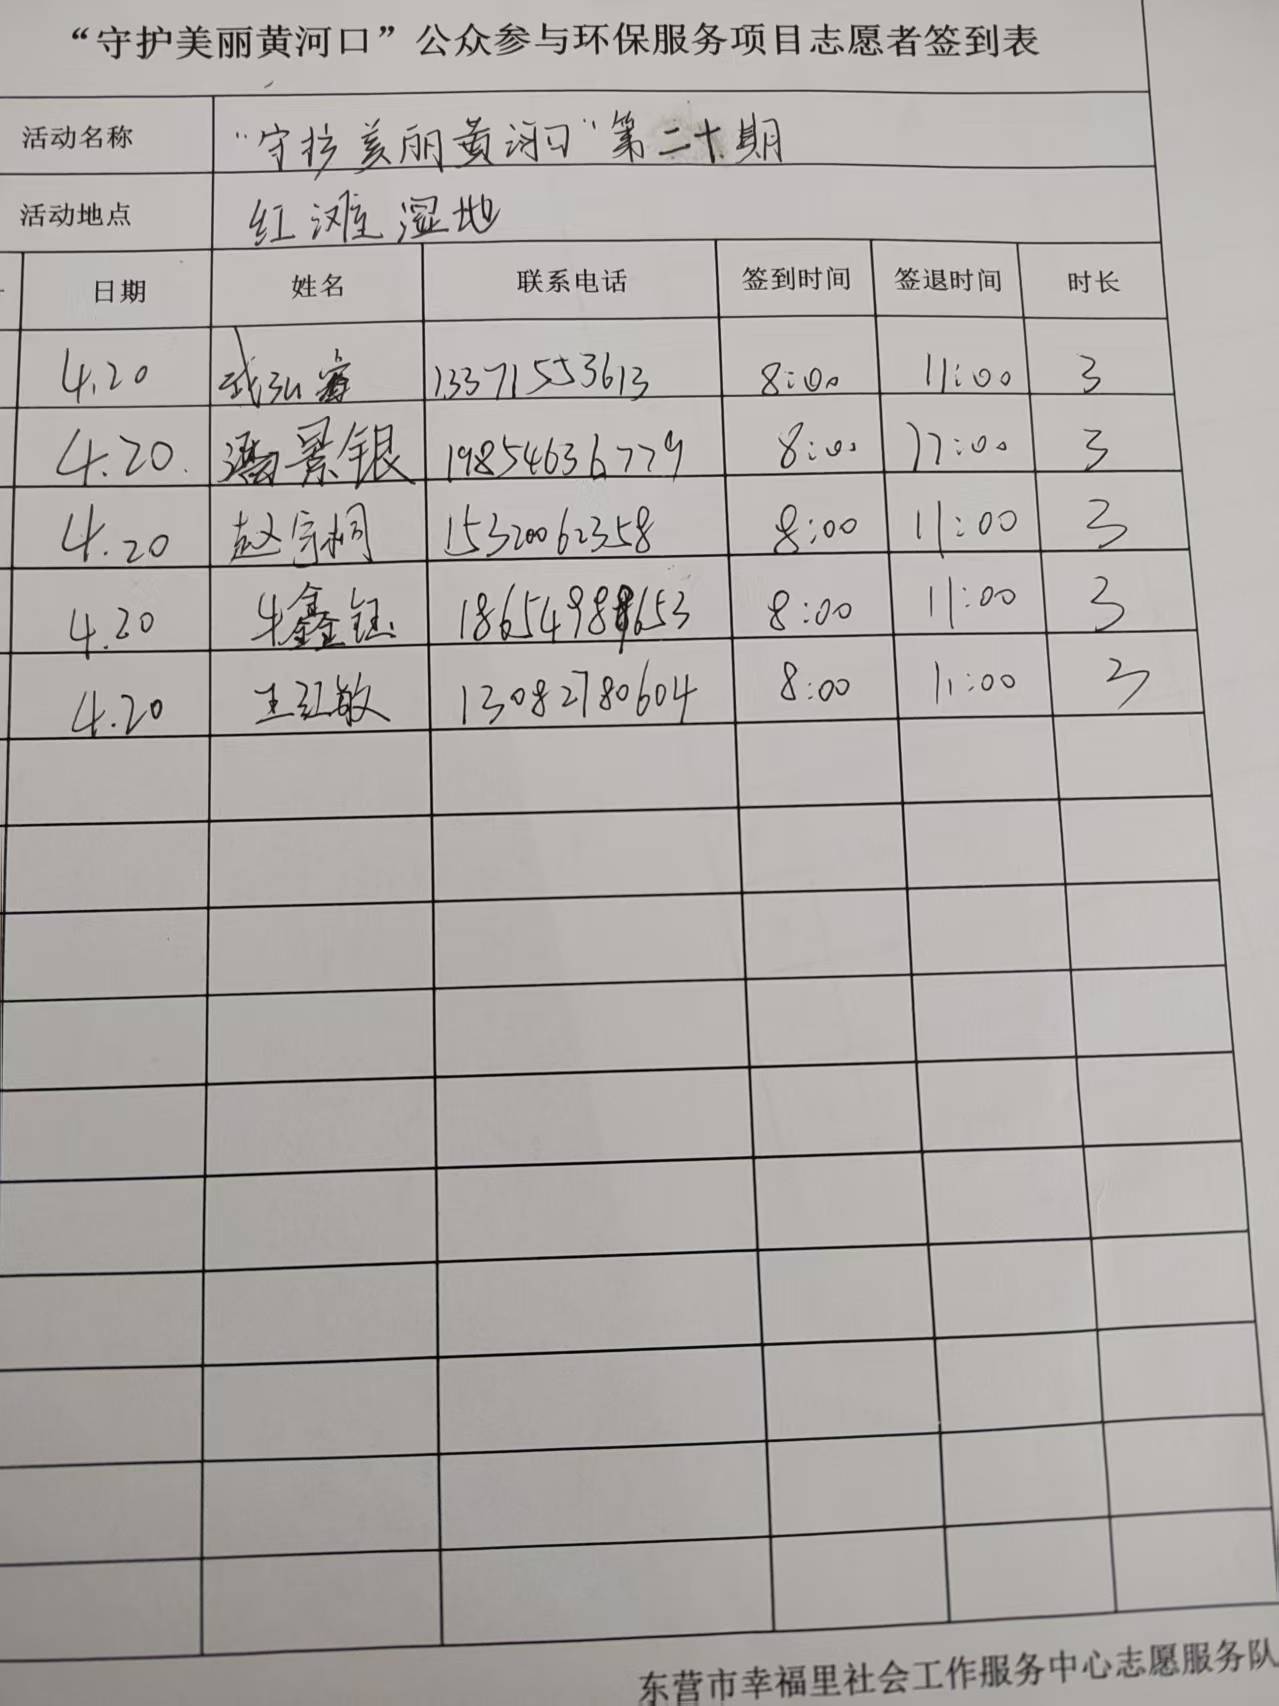 “守护美丽黄河口”公众参与环保服务项目志愿者签到表
活动名称 “守护美丽黄河口”第二十期
活动地点 红滩湿地
日期 姓名 联系电话 签到时间 签退时间 时长
4.20 武弘 13371553613 8:00 11:00 3
4.20. 潘景银 19854636779 8:00 11:00 3
4.20 赵宗桐 15320062358 8:00 11:00 3
4.20 牛鑫钰 8:00 11:00 3
4.20 王红敏 13082780604 8:00 11:00 3
东营市幸福里社会工作服务中心志愿服务队